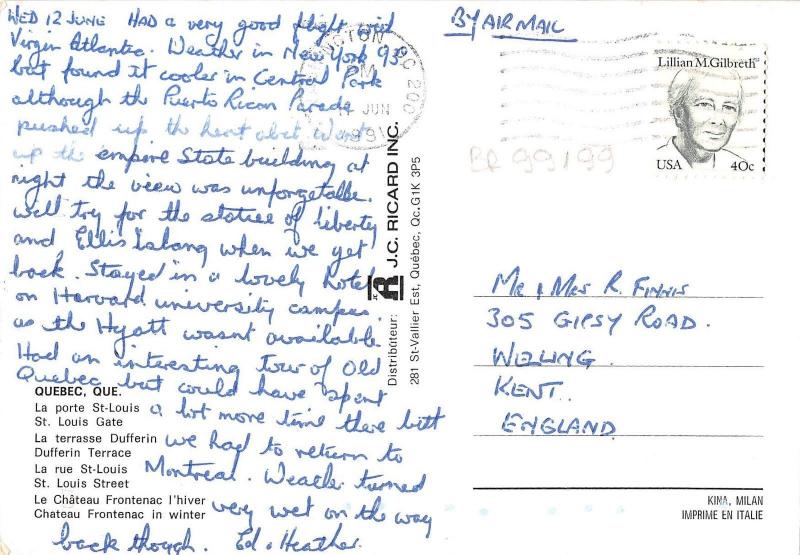 WED 12 JUNE HAD a very good flight with
Virgin Atlantic. Weather in New York 93°
but found it cooler in Central Park
although the Puerto Rican Parade
pushed up the heat abit. Went
up the empire State building at
night the view was unforgetable.
Will try for the statue of liberty
and Ellis Islang when we get
back. Stayed in a lovely hotel
on Harvard university campus.
as the Hyatt wasnt available
Had an interesting tour of Old
Quebec but could have spent
a lot more time there but
we had to return to
Montreal. Weather turned
very wet on the way
back though. Ed & Heather.
QUEBEC, QUE.
La porte St-Louis
St. Louis Gate
La terrasse Dufferin
Dufferin Terrace
La rue St-Louis
St. Louis Street
Le Château Frontenac l'hiver
Chateau Frontenac in winter
Distributeur: J.C. RICARD INC.
281 St-Vallier Est, Québec, Qc. G1K 3P5
BY AIR MAIL
NGTON DC 200
PM
JUN
1991
Lillian M. Gilbreth
USA 40c
BR 99199
Mr & Mrs R. Finnis
305 GIPSY ROAD.
WELLING.
KENT.
ENGLAND
KINA, MILAN
IMPRIME EN ITALIE